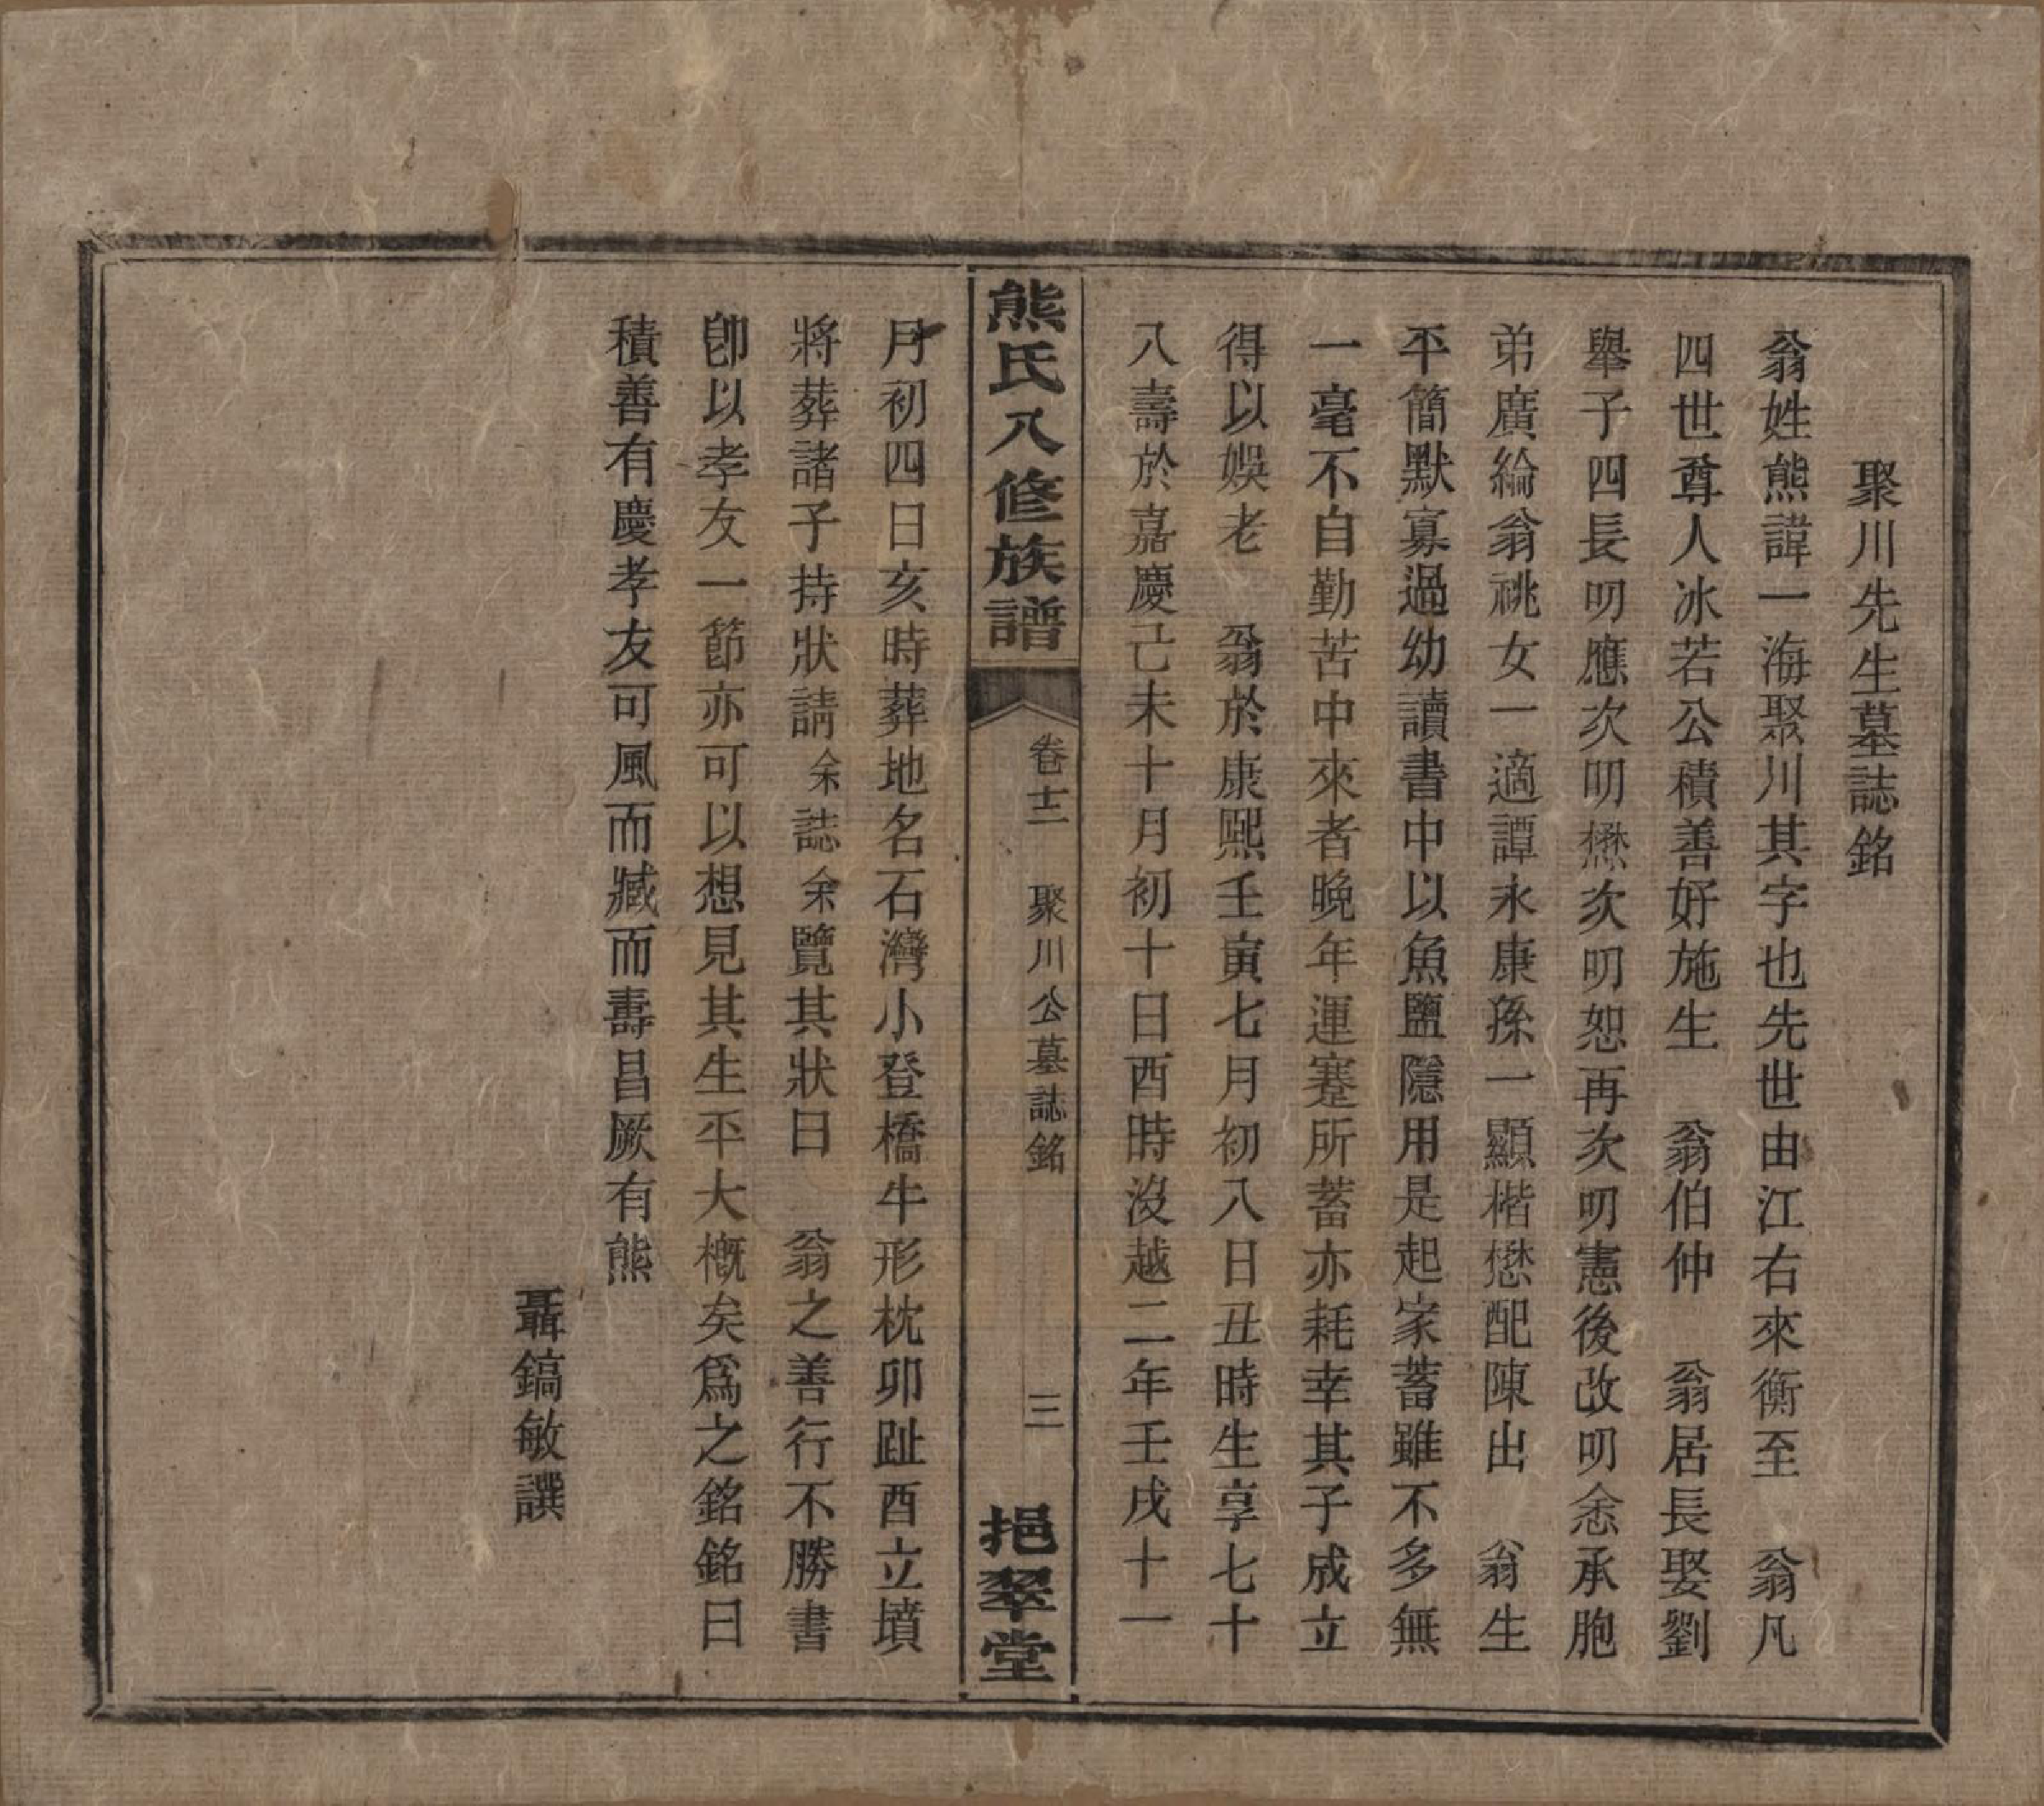 聚川先生墓誌銘
翁姓熊諱一海聚川其字也先世由江右來衡至　翁凡
四世尊人冰若公積善好施生　翁伯仲　翁居長娶劉
舉子四長明應次明懋次明恕再次明憲後改明悆承胞
弟廣綸翁祧女一適譚永康孫一顯楷懋配陳出　翁生
平簡默寡過幼讀書中以魚鹽隱用是起家蓄雖不多無
一毫不自勤苦中來者晚年運蹇所蓄亦耗幸其子成立
得以娛老　翁於康熙壬寅七月初八日丑時生享七十
八壽於嘉慶己未十月初十日酉時沒越二年壬戌十一
熊氏八修族譜
卷十二　聚川公墓誌銘
三
挹翠堂
月初四日亥時葬地名石灣小登橋牛形枕卯趾酉立墳
將葬諸子持狀請余誌余覽其狀曰　翁之善行不勝書
卽以孝友一節亦可以想見其生平大槪矣爲之銘銘曰
積善有慶孝友可風而臧而壽昌厥有熊
聶鎬敏譔